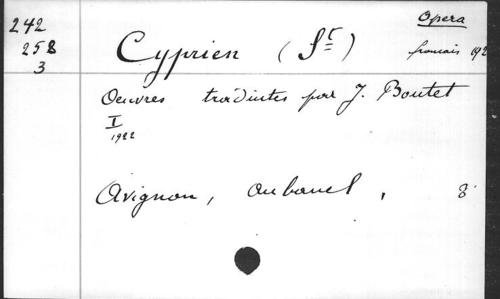 242
258
3
Opera
Cyprien (St)
francais 192
Oeuvres traduites par J. Boutet
I
1922
Avignon, Aubanel, 8°